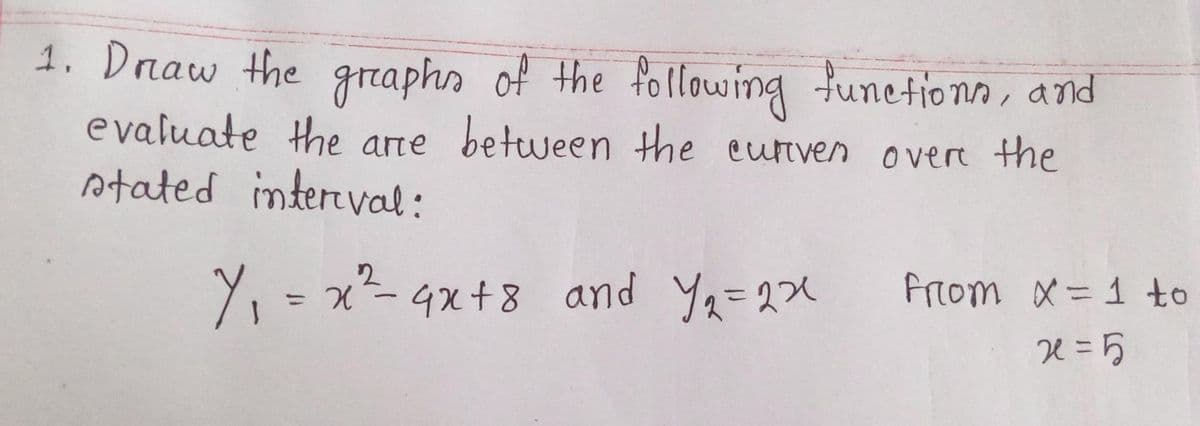 1. Draw the graphs of the following functions, and
evaluate the are between the curves over the
stated interval:
Y₁ = x² - 4x + 8 and Y₂ = 2x from x = 1 to
x = 5